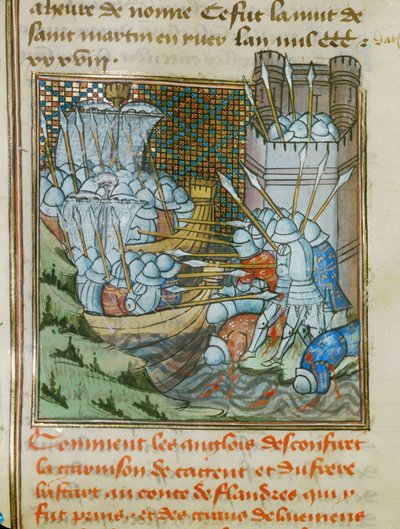 a heure de nonne Ce fut la nuit de
saint martin en yuer lan mil CCC &
xxxviii.
Comment les anglois desconfirēt
la garnison de cattent et du frere
bastart au conte de flandres qui y
fut prins et des